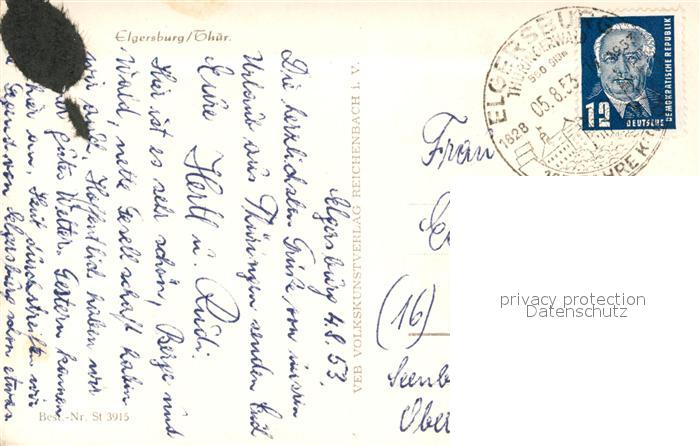 Elgersburg/Thür.
Elgersburg 4.8.53.
Die herzlichsten Grüße von unserm
Urlaub aus Thüringen senden Euch
Eure Hertl u. Rudi.
Hier ist es sehr schön, Berge und
Wald, nette Gesellschaft haben
wir auch. Hoffentlich haben wir
gutes Wetter. Gestern kamen
hier an. Heut durchstreiften wir
Gegend von Elgersburg vom etwas
Best.-Nr. St 3915
VEB VOLKSKUNSTVERLAG REICHENBACH I. V.
ELGERSBURG
THÜRINGERWALD
05.8.53
1828
12
DEUTSCHE
DEMOKRATISCHE REPUBLIK
Frau
(16)
Ober
privacy protection
Datenschutz